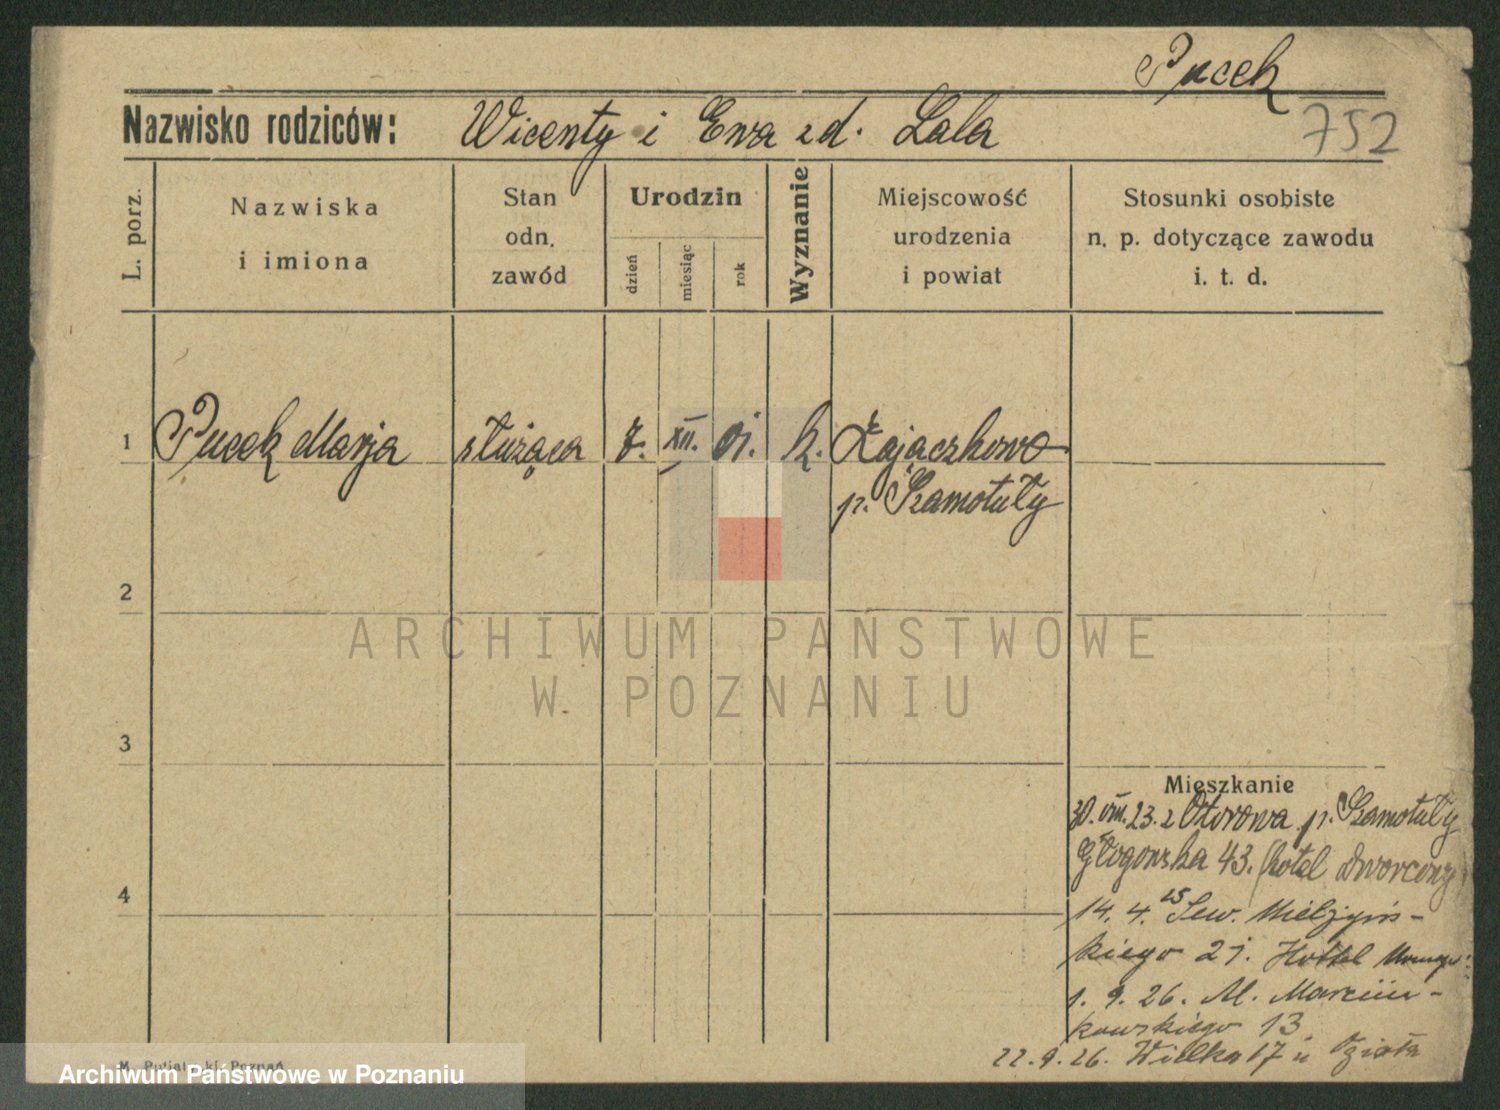 Pucek
Nazwisko rodziców: Wicenty i Ewa zd. Lala
752
L. porz.
Nazwiska
i imiona
Stan
odn.
zawód
Urodzin
dzień
miesiąc
rok
Wyznanie
Miejscowość
urodzenia
i powiat
Stosunki osobiste
n. p. dotyczące zawodu
i. t. d.
1 Pucek Marja służąca 7. XII. 01. k. Zajączkowo
p. Szamotuły
2
ARCHIWUM PAŃSTWOWE
W POZNANIU
3
Mieszkanie
30. VIII. 23. z Otorowa p. Szamotuły
Głogowska 43. (hotel dworcowy)
4
14. 4. 25 Sew. Mielżyńs-
kiego 21. Hottel
1. 9. 26. Al. Marcin-
kowskiego 13
22. 9. 26. Wielka 17 u
M. Putiatycki Poznań
Archiwum Państwowe w Poznaniu